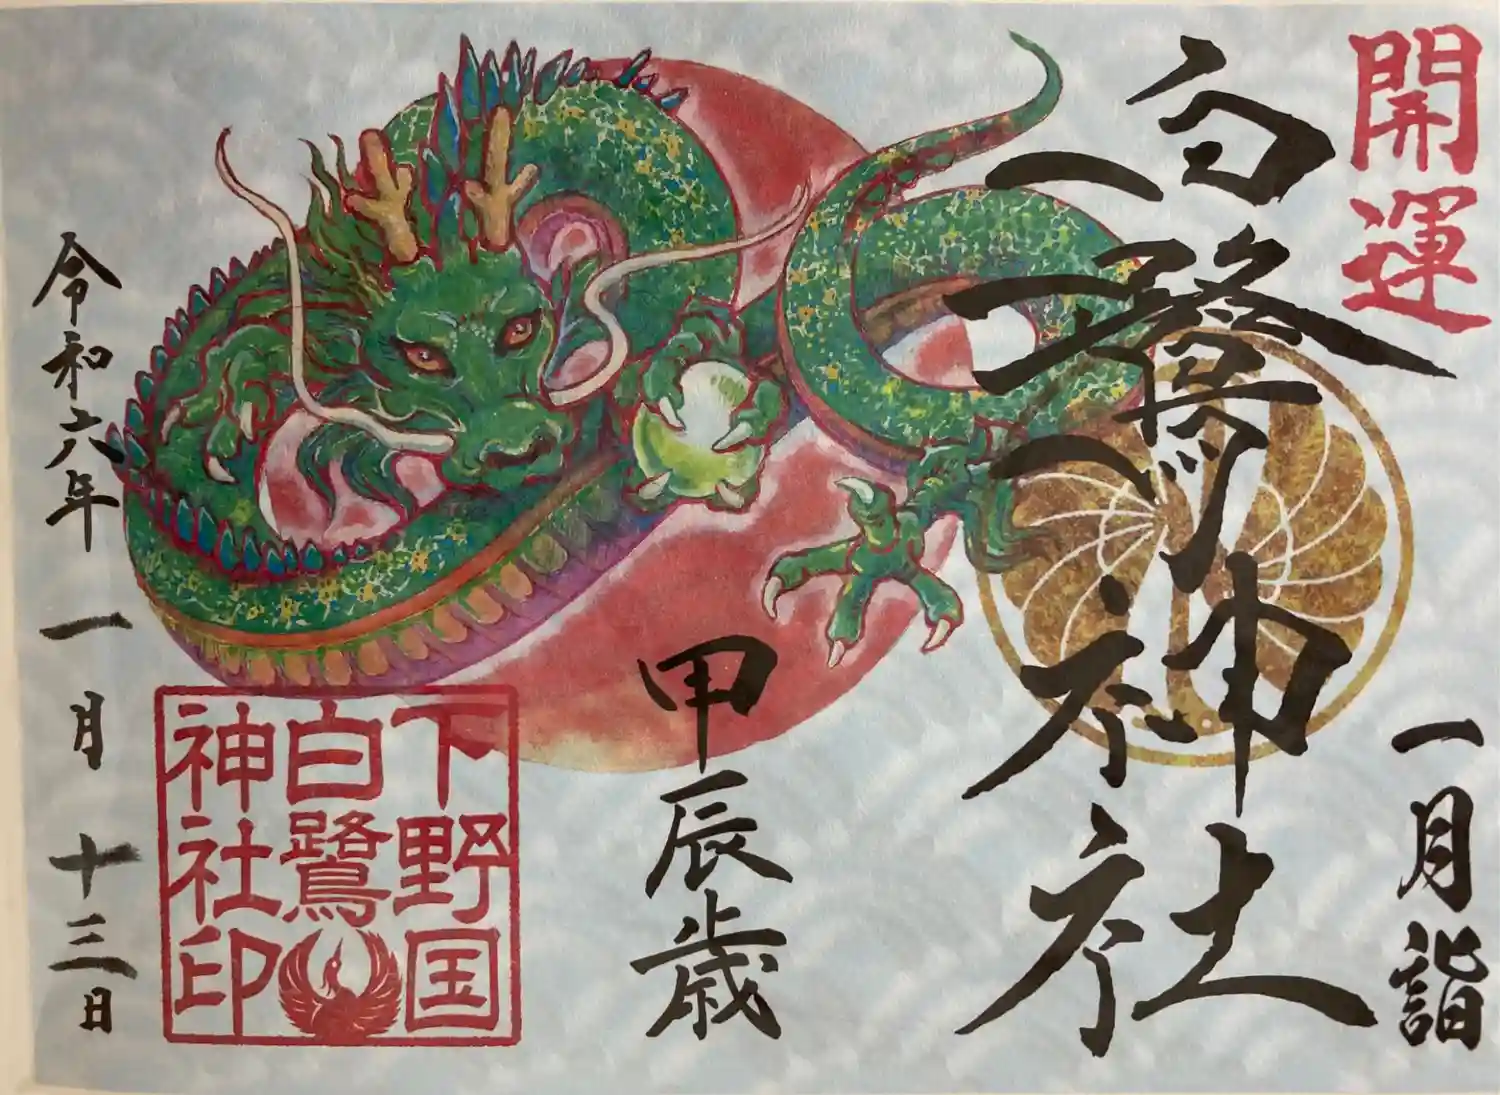 開運
一月詣
白鷺神社
甲辰歳
下野国
白鷺
神社印
令和六年一月十三日